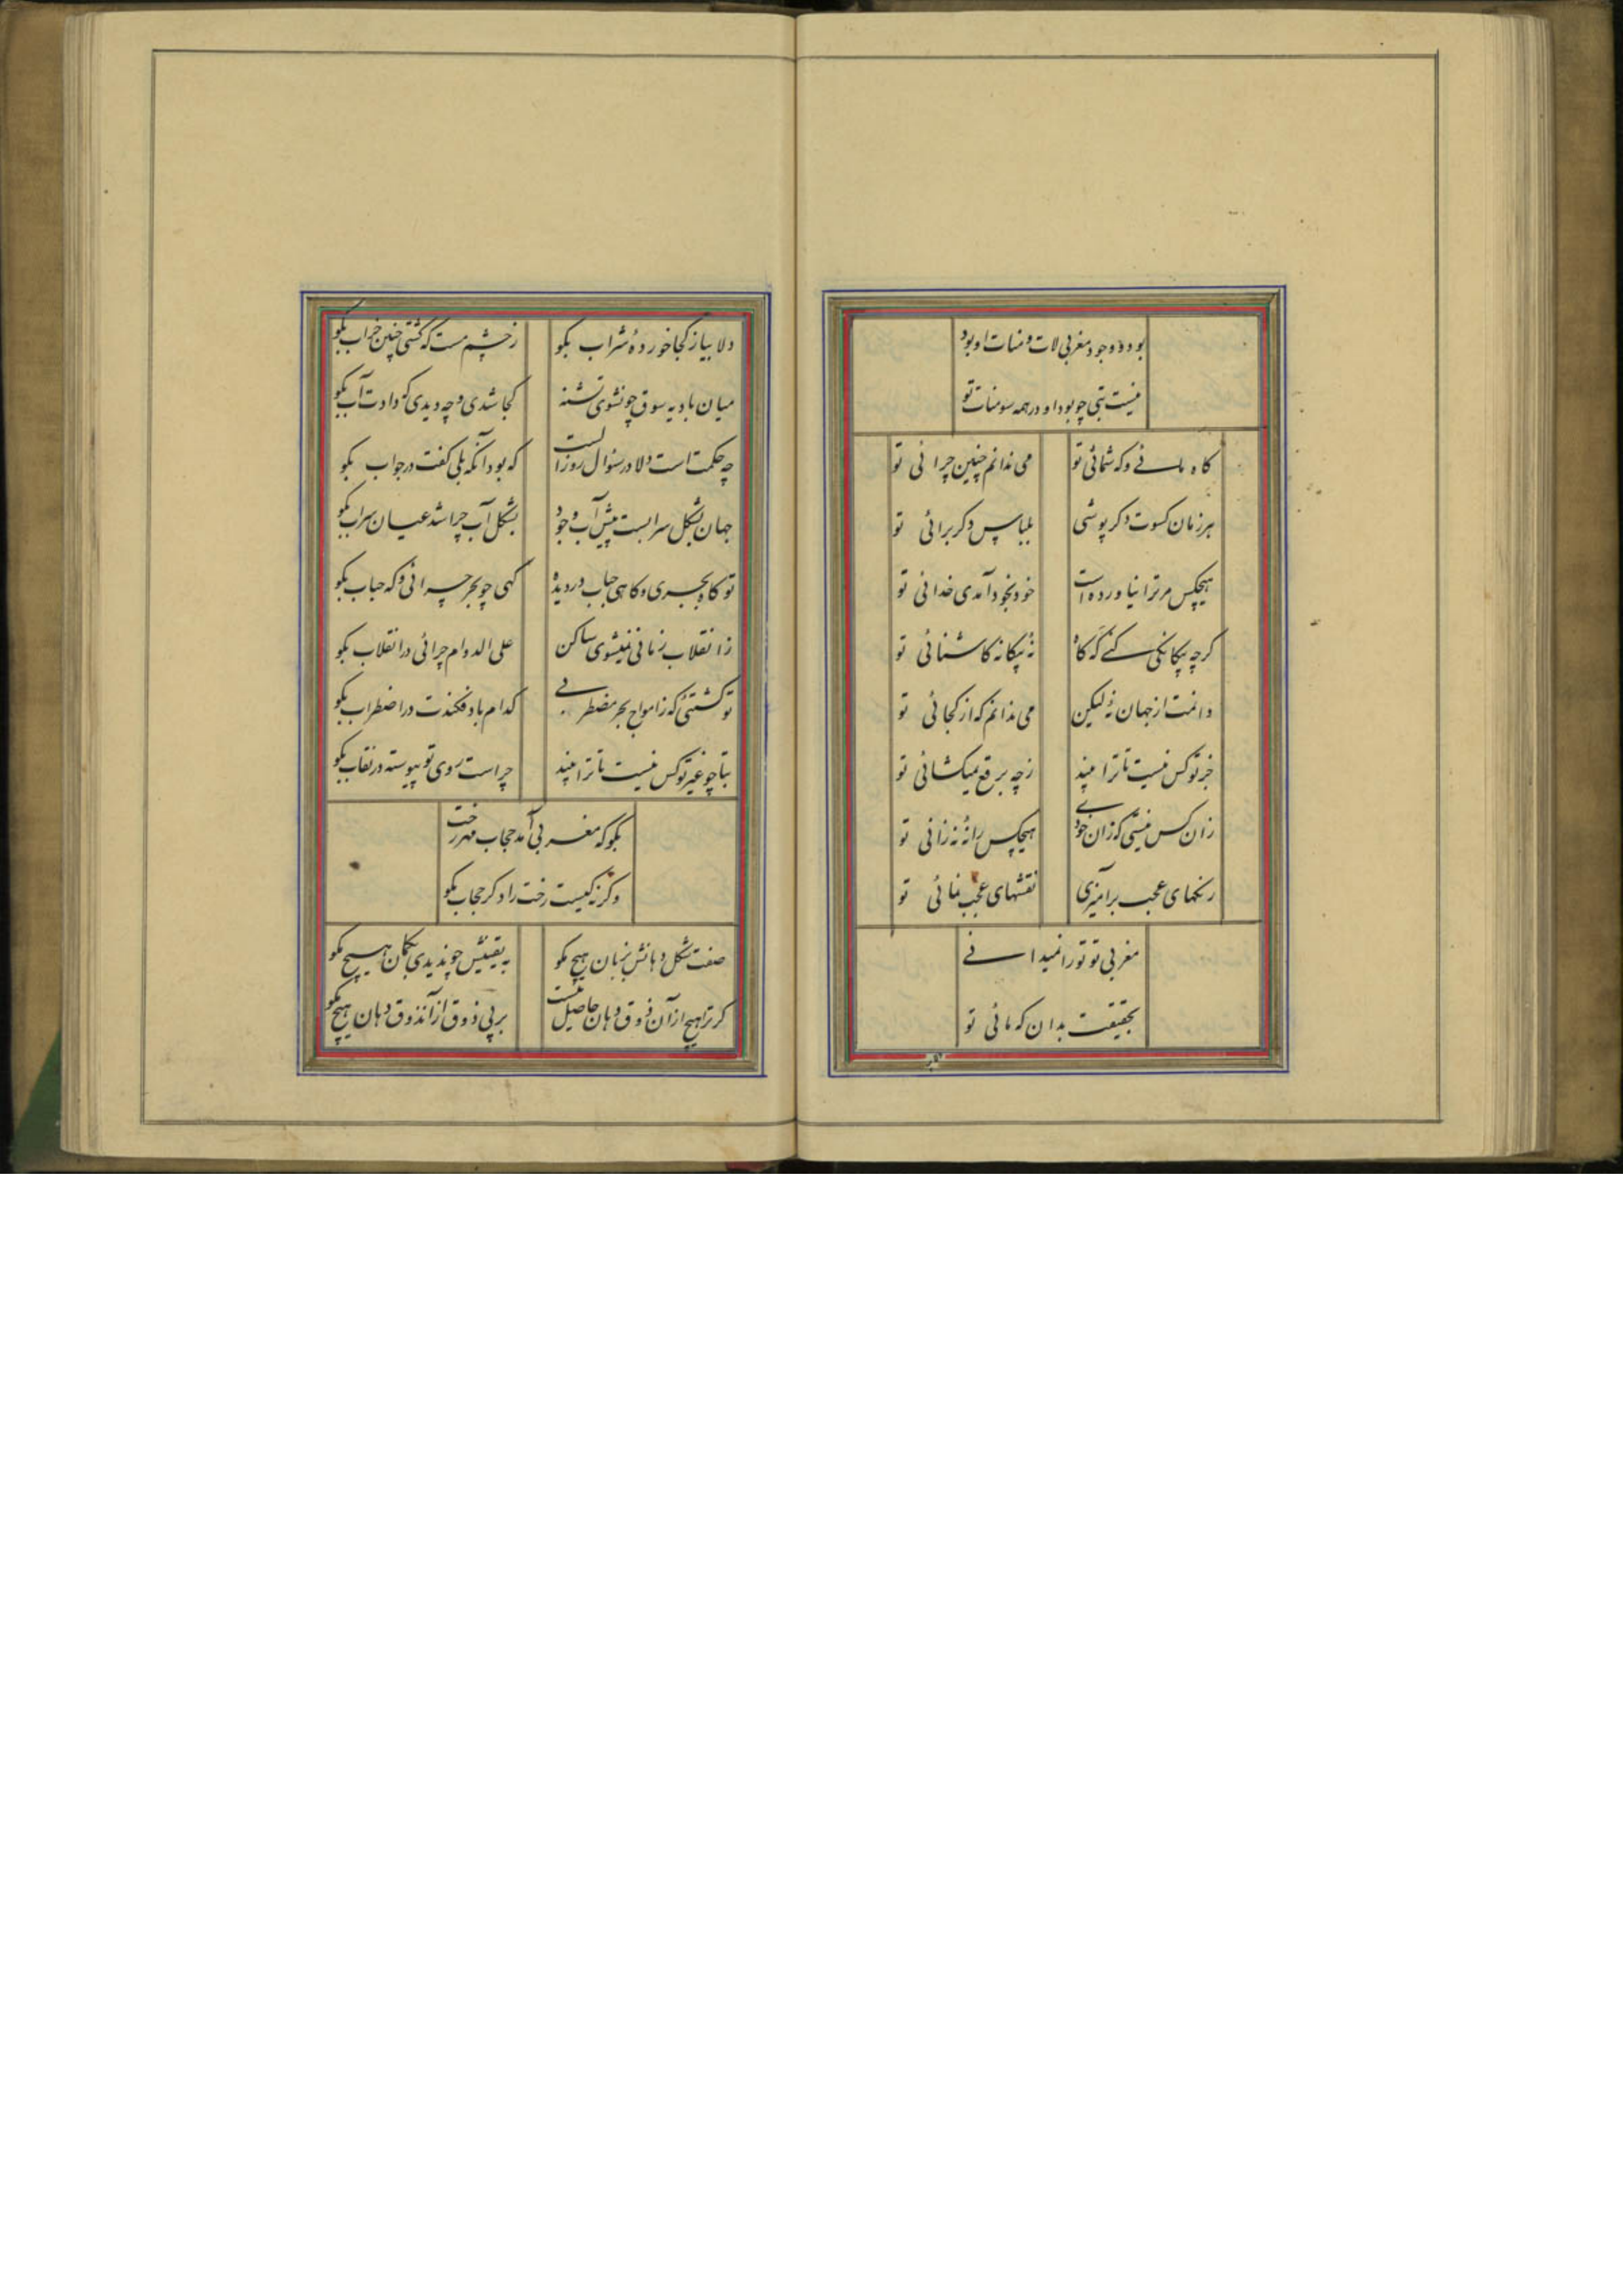 بود وجود مغربی لات و منات او بود
نیست بتی چو بود او در همه سومنات تو
گاه مائی و گه شمائی تو
می ندانم چنین چرائی تو
هر زمان کسوت دگر پوشی
بلباس دگر برائی تو
هیچکس مر ترا نیاورده است
خود بخود آمدی خدائی تو
گرچه بیگانگی کنی که گاه
نه بیگانه کاشنائی تو
دانمت از جهان نه لیکن
می ندانم که از کجائی تو
جز تو کس نیست تا ترا بیند
ز چه برقع نمیگشائی تو
زان کس نیستی که زان خودی
هیچکس را نه نه زانی تو
رنگهای عجب برآمیزی
نقشهای عجب نمائی تو
مغربی تو تو را نمیدانی
بحقیقت بدان که مائی تو
دلا بیا ز کجا خورده شراب بگو
ز چشم مست که گشتی چنین خراب بگو
میان بادیه سوق چو نشوی تشنه
کجا شدی و چه دیدی که دادت آب بگو
چه حکمت است دلا در سئوال روز الست
که بود آنکه بلی گفت در جواب بگو
جهان بشکل سرابست پیش آب وجود
بشکل آب چرا شد عیان سراب بگو
تو گاه بحری و گاهی حباب در دیده
گهی چو بحر چرائی و گه حباب بگو
ز انقلاب زمانی نمیشوی ساکن
علی الدوام چرائی در انقلاب بگو
تو کشتئی که ز امواج بحر مضطربی
کدام باد فکندت در اضطراب بگو
بتا چو غیر تو کس نیست تا ترا بیند
چراست روی تو پیوسته در نقاب بگو
بگو که مغربی آمد حجاب مهر رخت
وگرنه کیست رخت را دگر حجاب بگو
صفت شکل دهانش بزبان هیچ مگو
به یقینش چو ندیدی بگمان هیچ مگو
گر ترا هیچ از آن ذوق دهان حاصل نیست
بر بی ذوق از آنذوق دهان هیچ مگو